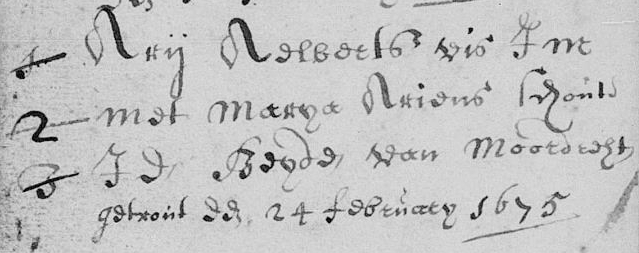 1 Arij Aelberts vis J m
2 met Marya Ariens schout
3 J d, Beyde, van Moordreht
getrout den 24 february 1675